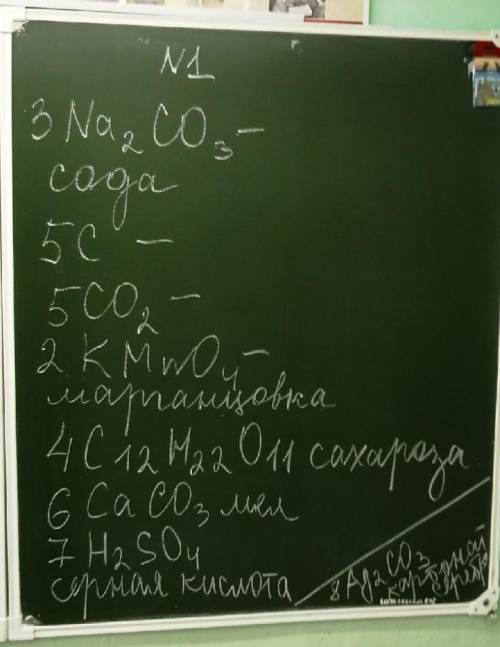 N1
3 Na2CO3 –
сода
5C –
5CO2 –
2 KMnO4 –
марганцовка
4 C12H22O11 сахароза
6 CaCO3 мел
7 H2SO4
серная кислота
8 Ag2CO3
карбонат
серебра